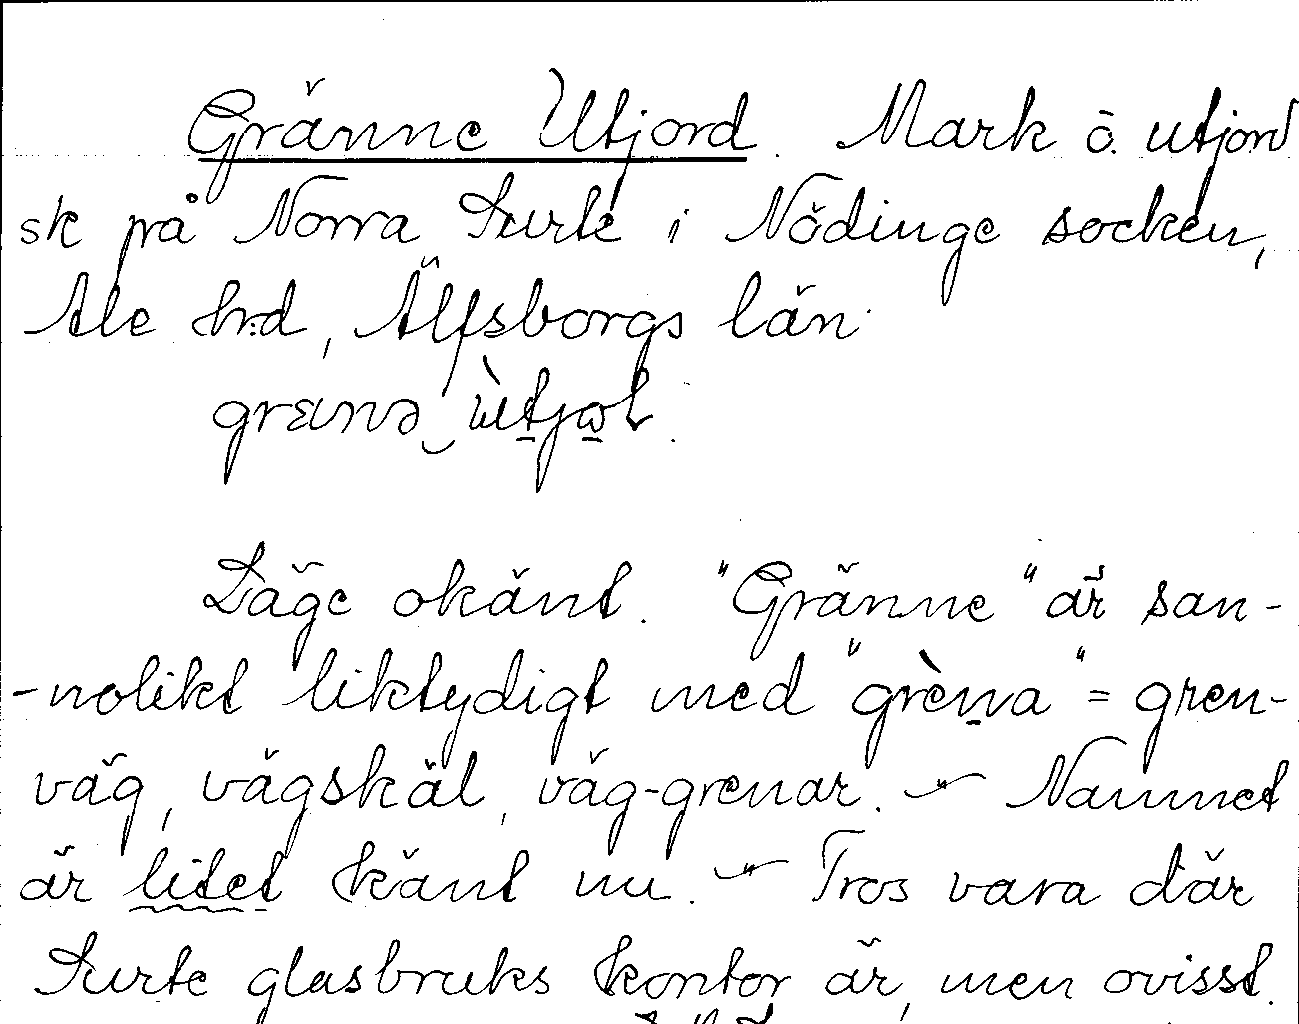 Gränne Utjord. Mark o. utjord
sk på Norra Surte i Nödinge socken,
Ale hrd, Älfsborgs län.
Läge okänt. "Gränne" är san-
-nolikt liktydigt med "grèna" = gren-
väg, vägskäl, väg-grenar. - Namnet
är litet känt nu. - Tros vara där
Surte glasbruks kontor är, men ovisst.